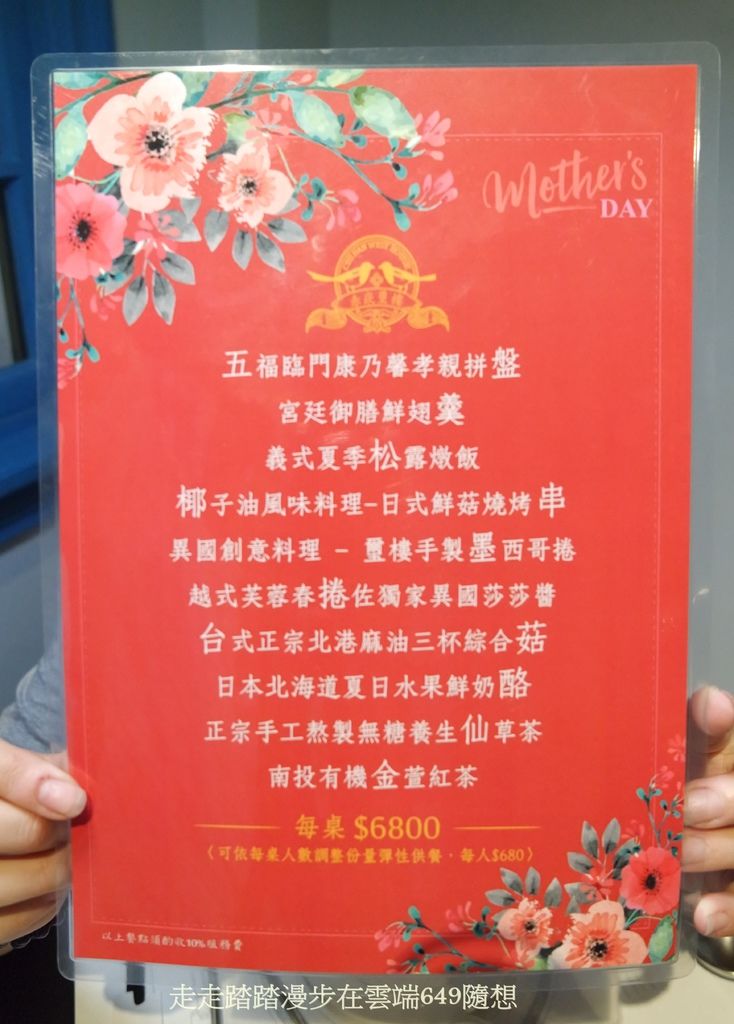 Mother's
DAY
五福臨門康乃馨孝親拼盤
宮廷御膳鮮翅羹
義式夏季松露燉飯
椰子油風味料理-日式鮮菇燒烤串
異國創意料理 - 璽樓手製墨西哥捲
越式芙蓉春捲佐獨家異國莎莎醬
台式正宗北港麻油三杯綜合菇
日本北海道夏日水果鮮奶酪
正宗手工熬製無糖養生仙草茶
南投有機金萱紅茶
每桌 $6800
（可依每桌人數調整份量彈性供餐，每人$680）
以上餐點須酌收10%服務費
走走踏踏漫步在雲端649隨想